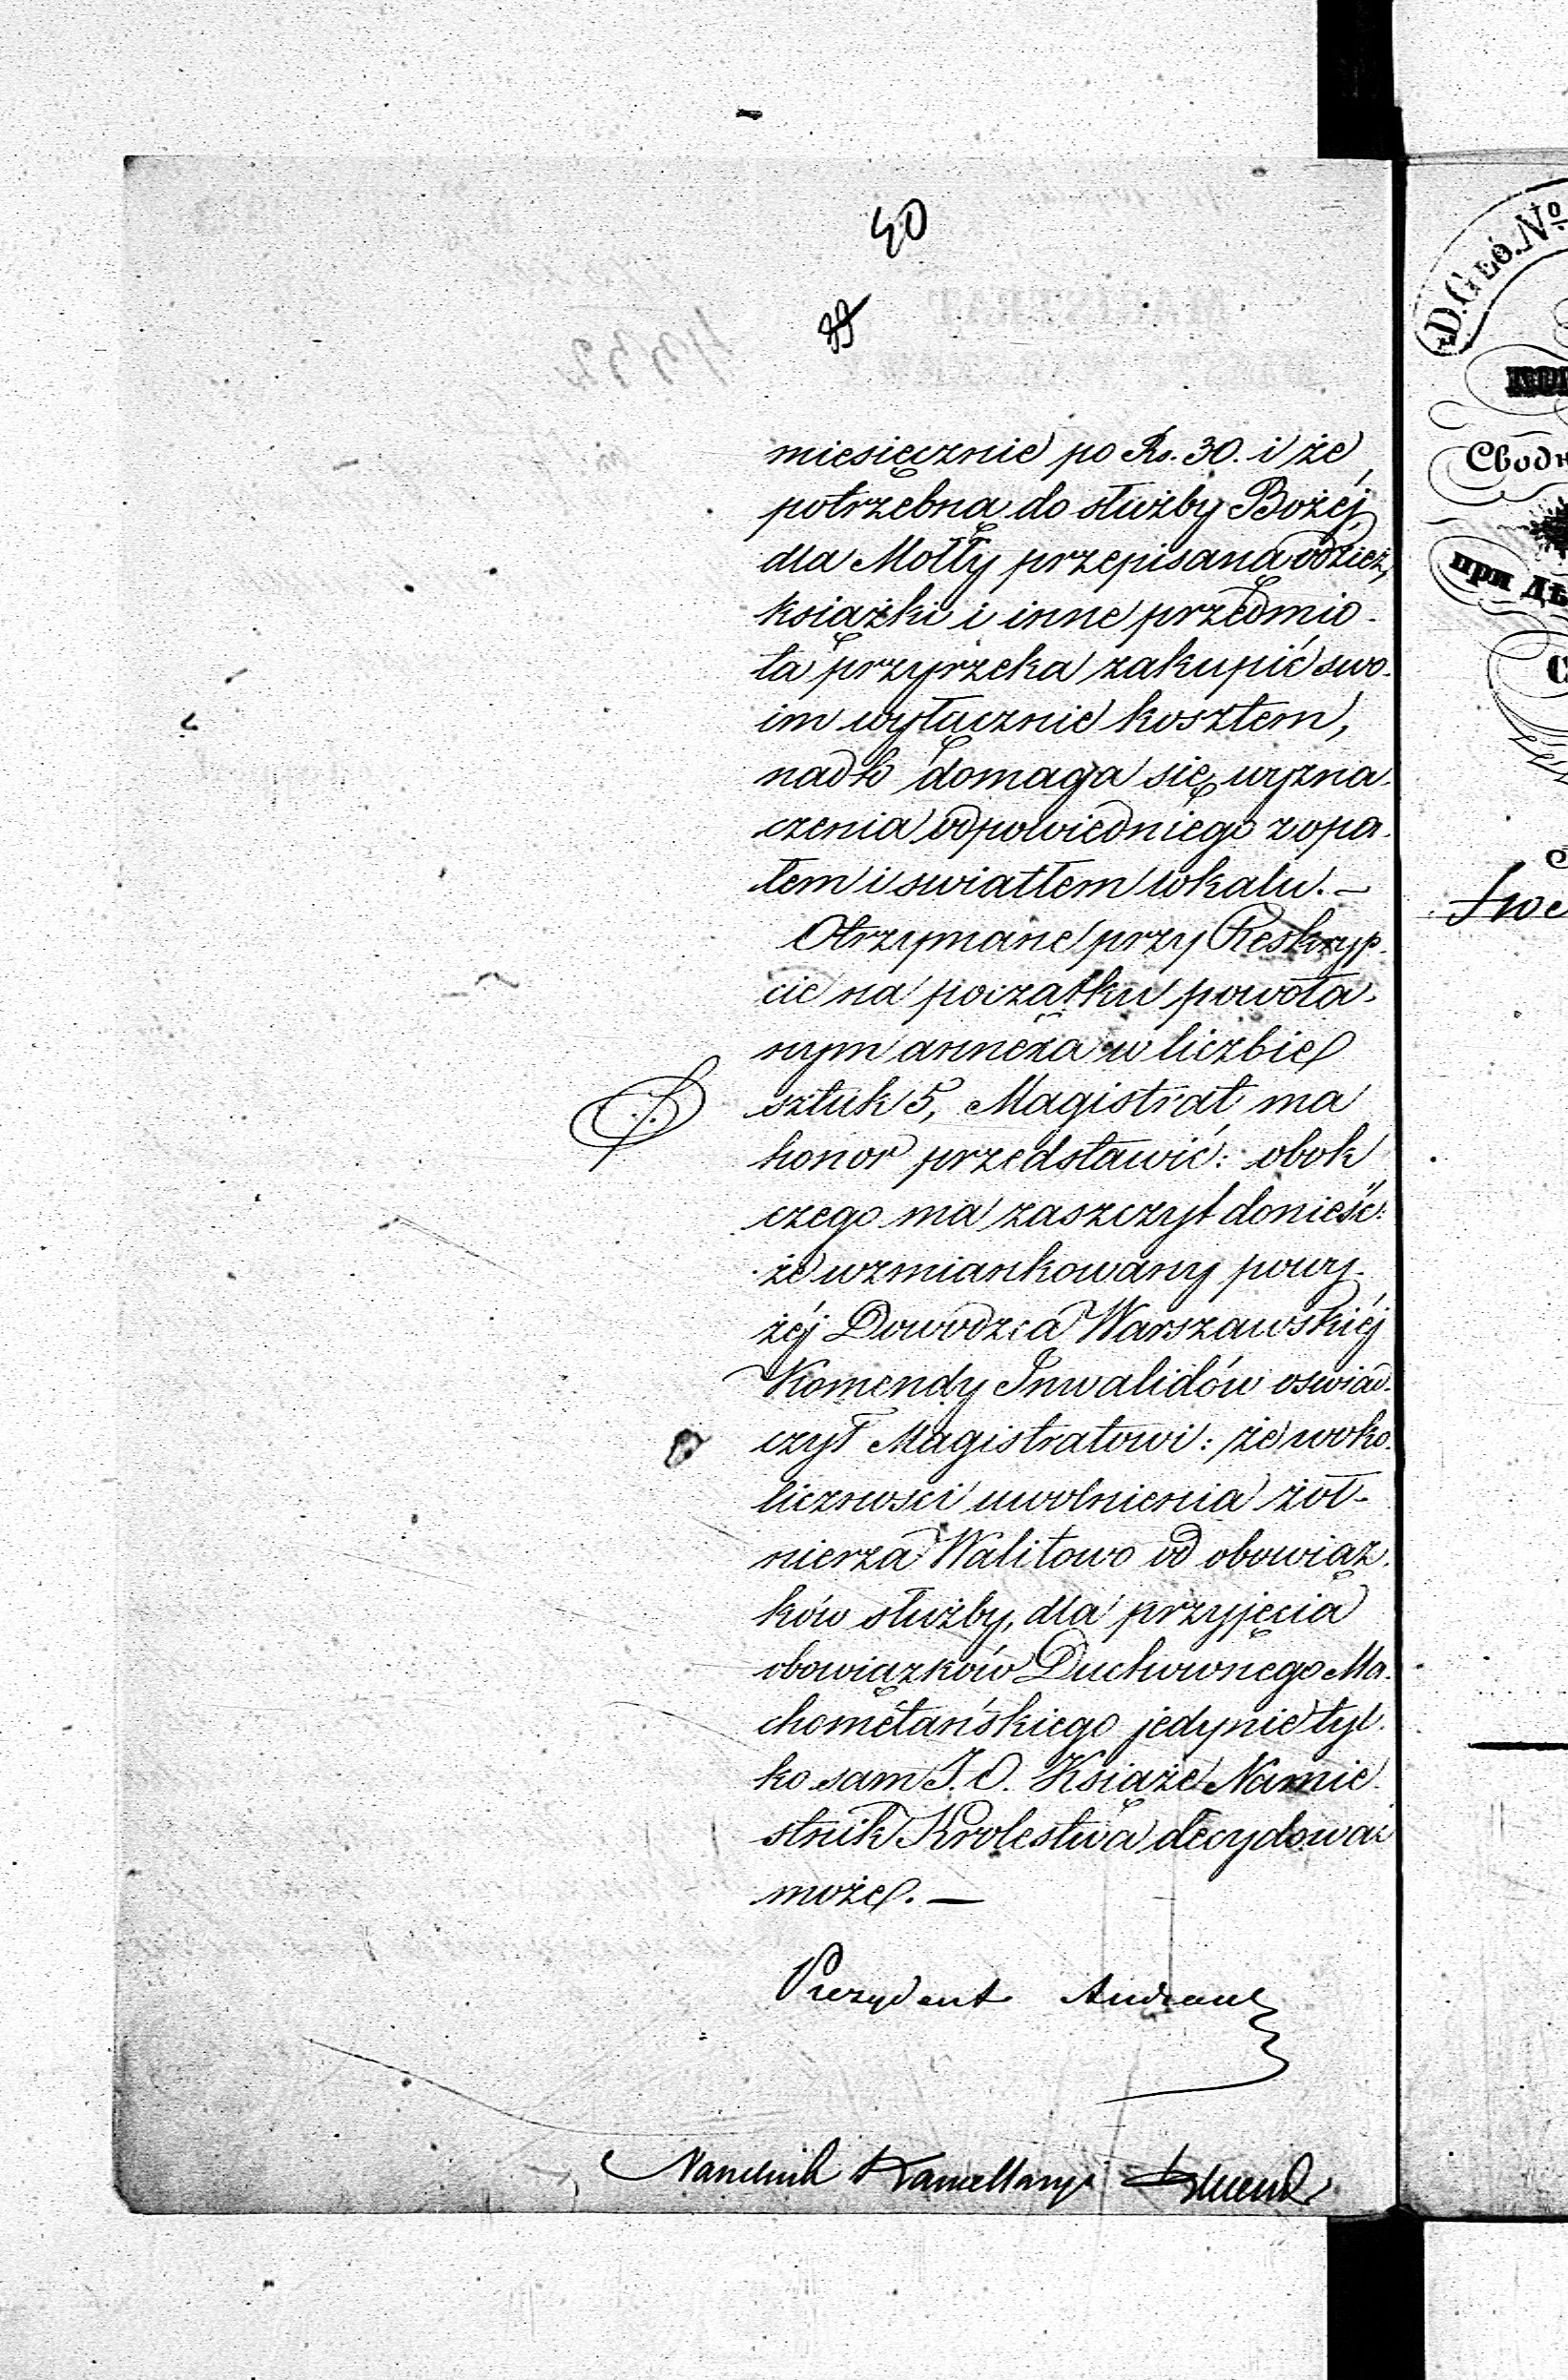 40
miesięcznie po Rs. 30. i że
potrzebną do służby Bożéj,
dla Mołły przepisaną odzież,
książki i inne przedmio-
ta przyrzeka zakupić swo-
im wyłącznie kosztem,
nadto domaga się wyzna-
czenia odpowiedniego z opa-
łem i swiatłem lokalu. –
Otrzymane przy Reskryp-
cie na początku powoła-
nym annexa w liczbie
sztuk 5, Magistrat ma
honor przedstawić: obok
czego ma zaszczyt donieść:
że wzmiankowany powy-
żéj Dowodzca Warszawskiéj
Komendy Inwalidów oswiad-
czył Magistratowi: że w oko-
liczności uwolnienia żoł-
nierza Walitowo od obowiąz-
ków służby, dla przyjęcia
obowiązków Duchownego Ma-
chometańskiego jedynie tyl-
ko sam J. O. Książe Namie-
stnik Krolestwa decydować
może. —
Prezydent Andrault
Naczelnik Kancellaryi
D. Geo. No
Сводн
при